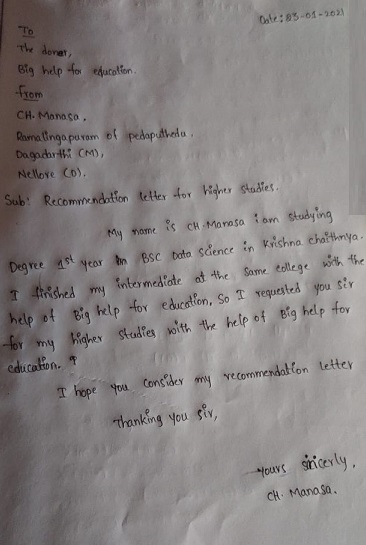 Date: 83-01-2021
To
The doner,
Big help for education.
From
CH. Manasa,
Ramalingapuram of pedaputhedu.
Dagadarthi (M),
Nellore (D).
Sub: Recommendation letter for higher studies.
My name is CH. Manasa i am studying
Degree 1st year in BSC Data Science in Krishna chaithnya.
I finished my intermediate at the same college with the
help of Big help for education, So I requested you sir
for my higher studies with the help of Big help for
education.
I hope you consider my recommendation letter
Thanking you sir,
yours sincerly,
CH. Manasa.